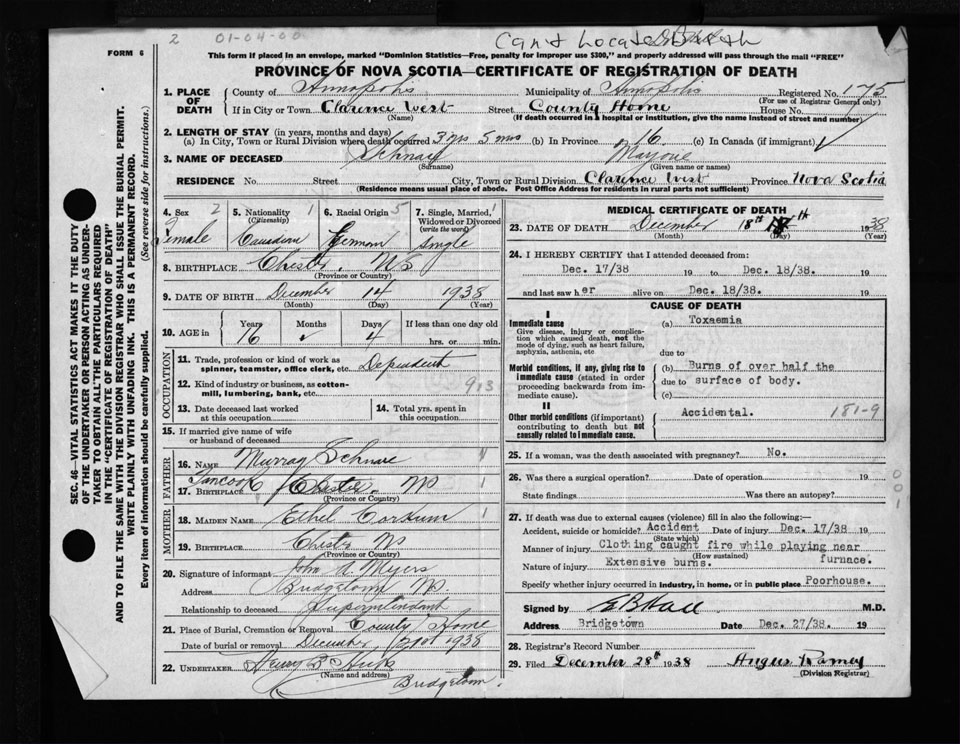 2 01-04-00 Can't Locate Birth
FORM 6
This form if placed in an envelope, marked "Dominion Statistics—Free, penalty for improper use $300," and properly addressed will pass through the mail "FREE"
PROVINCE OF NOVA SCOTIA—CERTIFICATE OF REGISTRATION OF DEATH
1. PLACE OF DEATH County of Annapolis Municipality of Annapolis Registered No. 175
(For use of Registrar General only)
If in City or Town Clarence West Street County Home House No.
(Name) (If death occurred in a hospital or institution, give the name instead of street and number)
2. LENGTH OF STAY (in years, months and days)
(a) In City, Town or Rural Division where death occurred 3 yrs 5 mos (b) In Province 16 (c) In Canada (if immigrant)
3. NAME OF DECEASED Schnare Marjorie
(Surname) (Given name or names)
RESIDENCE No. Street City, Town or Rural Division Clarence West Province Nova Scotia
(Residence means usual place of abode. Post Office Address for residents in rural parts not sufficient)
4. Sex 2 Female
5. Nationality 1 (Citizenship) Canadian
6. Racial Origin 5 German
7. Single, Married, 1 Widowed or Divorced (write the word) Single
8. BIRTHPLACE Chester, NS
(Province or Country)
9. DATE OF BIRTH December 14 1938
(Month) (Day) (Year)
10. AGE in Years Months Days If less than one day old
16 4 hrs. or min.
OCCUPATION
11. Trade, profession or kind of work as spinner, teamster, office clerk, etc. Dependent
12. Kind of industry or business, as cotton-mill, lumbering, bank, etc. 913
13. Date deceased last worked at this occupation
14. Total yrs. spent in this occupation
15. If married give name of wife or husband of deceased
FATHER
16. NAME Murray Schnare
17. BIRTHPLACE Tancook Chester, NS 1
(Province or Country)
MOTHER
18. MAIDEN NAME Ethel Corkum 1
19. BIRTHPLACE Chester NS
(Province or Country)
20. Signature of informant John A. Myers
Address Bridgetown NS.
Relationship to deceased Superintendant
21. Place of Burial, Cremation or Removal County Home
Date of burial or removal December 21st 1938
22. UNDERTAKER Henry B Hicks
(Name and address)
Bridgetown.
MEDICAL CERTIFICATE OF DEATH
23. DATE OF DEATH December 18th 1938
(Month) (Day) (Year)
24. I HEREBY CERTIFY that I attended deceased from:
Dec. 17/38 19 to Dec. 18/38. 19
and last saw her alive on Dec. 18/38. 19
CAUSE OF DEATH
I
Immediate cause (a) Toxaemia
Give disease, injury or complication which caused death, not the mode of dying, such as heart failure, asphyxia, asthenia, etc
due to
Morbid conditions, if any, giving rise to immediate cause (stated in order proceeding backwards from immediate cause).
(b) Burns of over half the
due to surface of body.
(c)
II
Other morbid conditions (if important) contributing to death but not causally related to immediate cause.
Accidental. 181-9
25. If a woman, was the death associated with pregnancy? No.
26. Was there a surgical operation? Date of operation 19
State findings Was there an autopsy?
27. If death was due to external causes (violence) fill in also the following:—
Accident, suicide or homicide? Accident Date of injury Dec. 17/38 19
(State which)
Manner of injury Clothing caught fire while playing near furnace.
(How sustained)
Nature of injury Extensive burns.
Specify whether injury occurred in industry, in home, or in public place Poorhouse.
Signed by E B Hall M.D.
Address Bridgetown Date Dec. 27/38. 19
28. Registrar's Record Number
29. Filed December 28th 1938 Angus Ramey
(Division Registrar)
001
SEC. 46—VITAL STATISTICS ACT MAKES IT THE DUTY
OF THE UNDERTAKER OR PERSON ACTING AS UNDER-
TAKER TO OBTAIN ALL THE PARTICULARS REQUIRED
IN THE "CERTIFICATE OF REGISTRATION OF DEATH"
AND TO FILE THE SAME WITH THE DIVISION REGISTRAR WHO SHALL ISSUE THE BURIAL PERMIT.
WRITE PLAINLY WITH UNFADING INK. THIS IS A PERMANENT RECORD.
Every item of information should be carefully supplied. (See reverse side for instructions.)